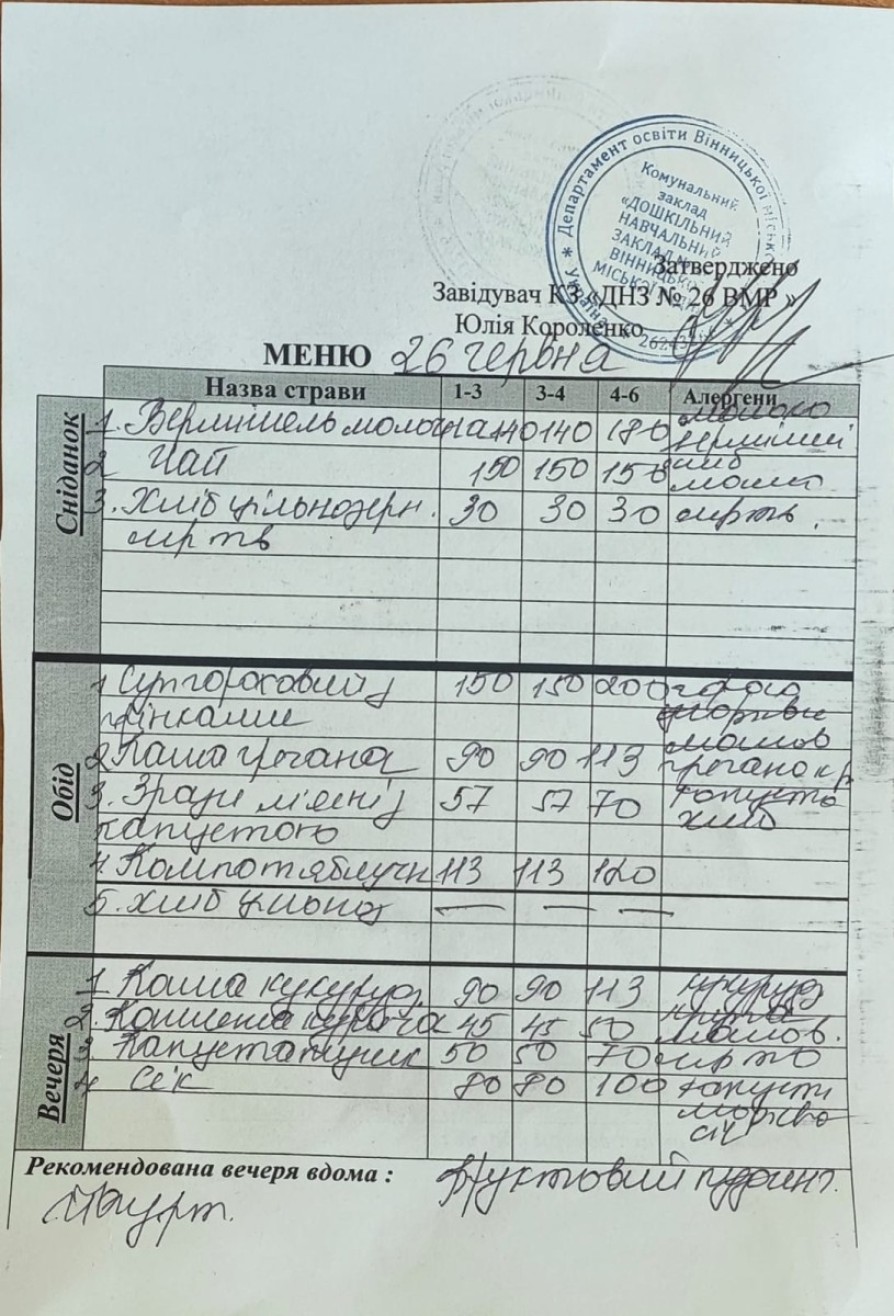 Департамент освіти Вінницької місько
Комунальний
заклад
«ДОШКІЛЬНИЙ
НАВЧАЛЬНИЙ
ЗАКЛАД №
ВІННИЦЬКО
МІСЬКО
Україна
Затверджено
Завідувач КЗ «ДНЗ № 26 ВМР »
Юлія Короленко
МЕНЮ 26 червня
Назва страви 1-3 3-4 4-6 Алергени
Сніданок
1. Вермішель молочна 140 140 180 молоко
вермішел
2 Чай 150 150 150 хліб
масло
3. Хліб цільнозерн. 30 30 30 мртв.
мртв
Обід
1 Суп гороховий з 150 150 200 горох
грінками морква
маслов
2 Каша гречана 90 90 113 гречано кр
3. Зрази мясні з 57 57 70 капуста
капустою хліб
4. Компот яблучн 113 113 120
5. хліб цільноз — — —
Вечеря
1. Каша кукурудз. 90 90 113 кукурудз
2. Котлета куряча 45 45 50 маслов.
3 Капуста тушк 50 50 70
4 Сік 80 80 100 капуст
морква
сік
Рекомендована вечеря вдома : Фруктовий пудинг.
Йогурт.